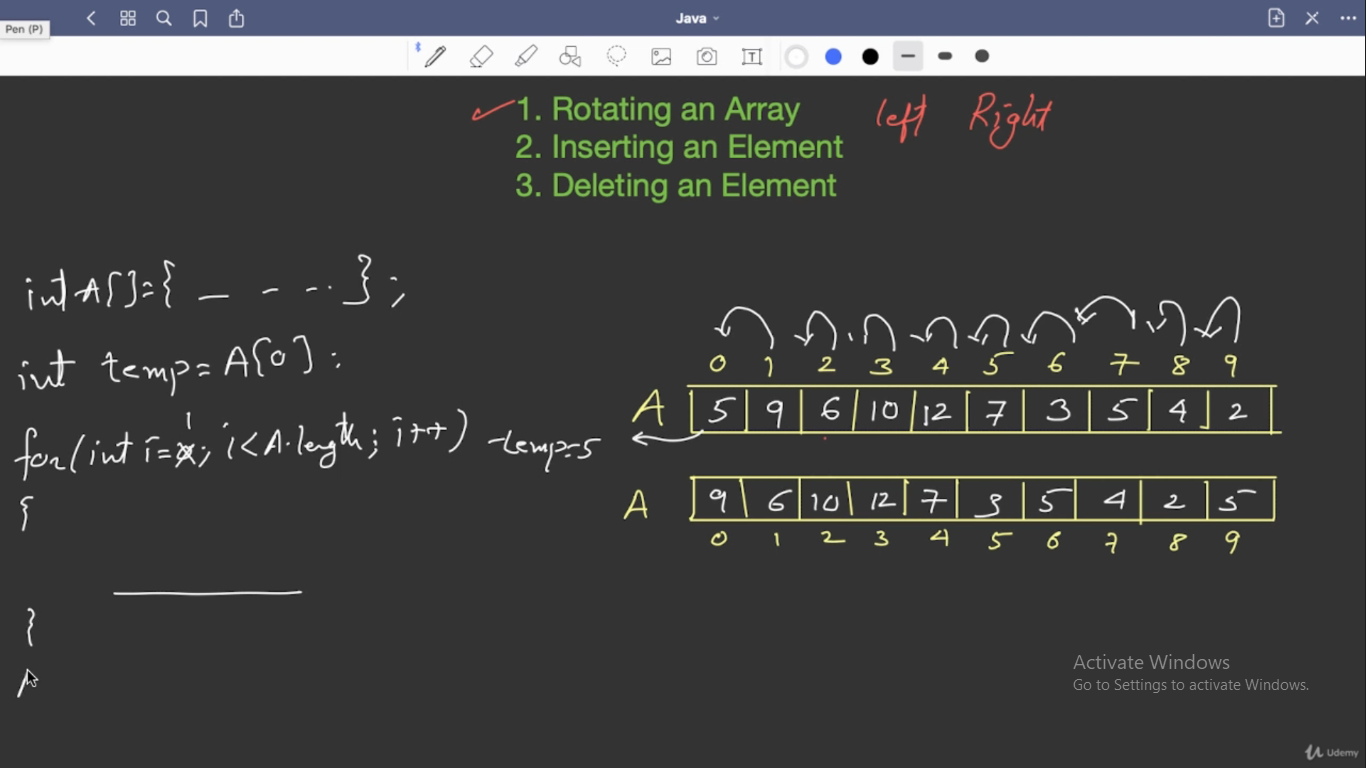 Java
Pen (P)
T
1. Rotating an Array left Right
2. Inserting an Element
3. Deleting an Element
int A[]={ _ - - .. };
int temp=A[0];
for(int i=x; i<A.length; i++)
1
{
}
temp=5
0 1 2 3 4 5 6 7 8 9
A 5 9 6 10 12 7 3 5 4 2
A 9 6 10 12 7 3 5 4 2 5
0 1 2 3 4 5 6 7 8 9
Activate Windows
Go to Settings to activate Windows.
Udemy